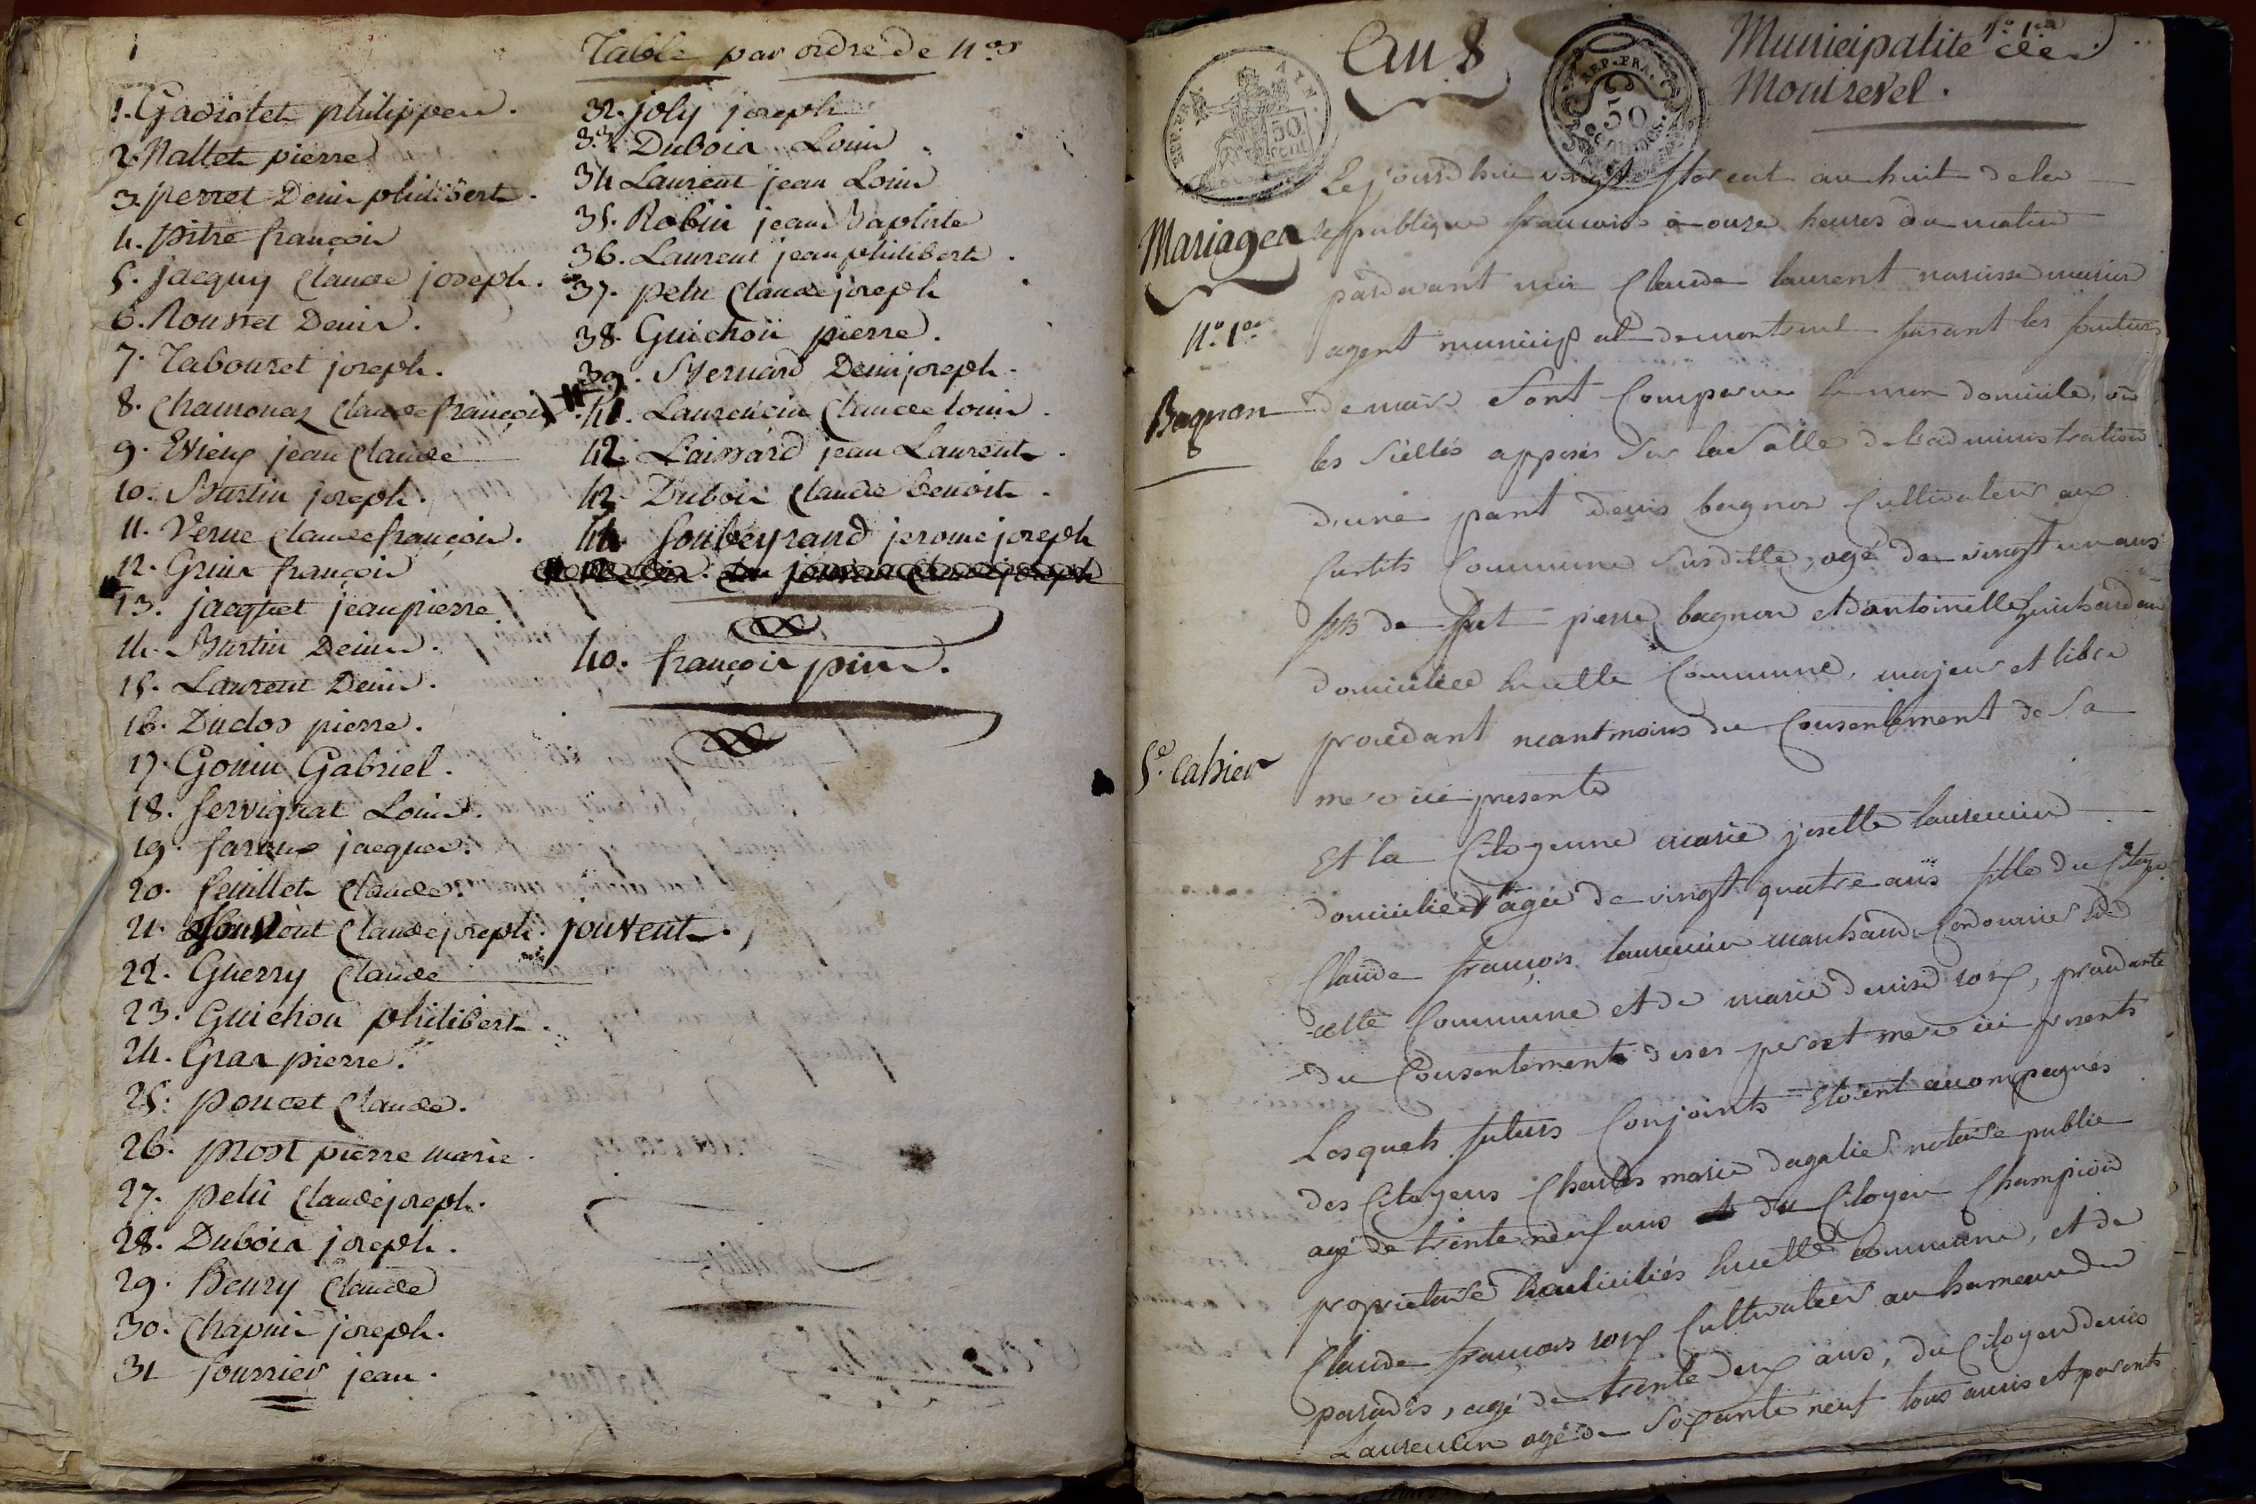 1
Table par ordre de N.os
1. Gadiolet philippe.
2. Nallet pierre
3. perret Denis philibert.
4. pitre françois
5. jacquy Claude joseph.
6. Rousset Denis.
7. Tabouret joseph.
8. Chamonaz Claude françois
9. Evieux jean Claude
10. Burtin joseph.
11. Verne Claude françois.
12. françois
13. jacquet jean pierre
14. Burtin Denis.
15. Laurent Denis.
16. Duclos pierre.
17. Gonin Gabriel.
18. servignat Louis.
19. jacques.
20. feuillet Claude.
21. Claude joseph. jouvent.
22. Guerry Claude
23. Guichon philibert.
24. Gras pierre.
25. poncet Claude.
26. prost pierre marie.
27. petit Claude joseph.
28. Dubois joseph.
29. Henry Claude
30. Chapuis joseph.
31 fourrier jean.
32. joly joseph
33. Dubois Louis
34 Laurent jean Louis
35. Robin jean Baptiste
36. Laurent jean philibert.
37. petit Claude joseph
38. Guichon pierre.
39. Bernard Denis joseph.
41. Laurencin Claude Louis.
42. jean Laurent.
43. Dubois Claude benoit.
44. Soubeyrand jerome joseph
40. françois pin.
An 8
N.o 1.er
Municipalité de
Montrevel.
REP. FRA.
50
CENTIMES
50
cent
Mariages
N.o 1.er
Bagnon
5.e Cahier
Lejourdhui vingt floreal an huit de la
republique françoise a onze heures du matin
pardevant moi Claude laurent narcisse
agent municipal de montrevel faisant les fonctions
de maire sont Comparus en mon domicile, vu
les scellés apposés sur la salle de l'administration
d'une part denis bagnon Cultivateur aux
Curtits Commune susditte, agé de vingt un ans
fils de fut pierre bagnon et d'antoinette guichardan
domiciliée en cette Commune, majeur et libre
procedant neantmoins du Consentement de sa
mere ici presente
Et la Citoyenne marie josette laurencin
domiciliée agée de vingt quatre ans fille du Citoyen
Claude françois laurencin marchand Cordonnier de
cette Commune et de marie denise roux, procedante
du Consentement de ses pere et mere ici presents
Lesquels futurs Conjoints Etoient accompagnés
des Citoyens Charles marie dagalier notaire public
agé de trente neuf ans du Citoyen Champion
proprietaire domiciliés en cette Commune, et de
Claude françois roux Cultivateur au hameau du
paradis, agé de trente deux ans, du Citoyen denis
Laurencin agé de soixante neuf tous amis et parents